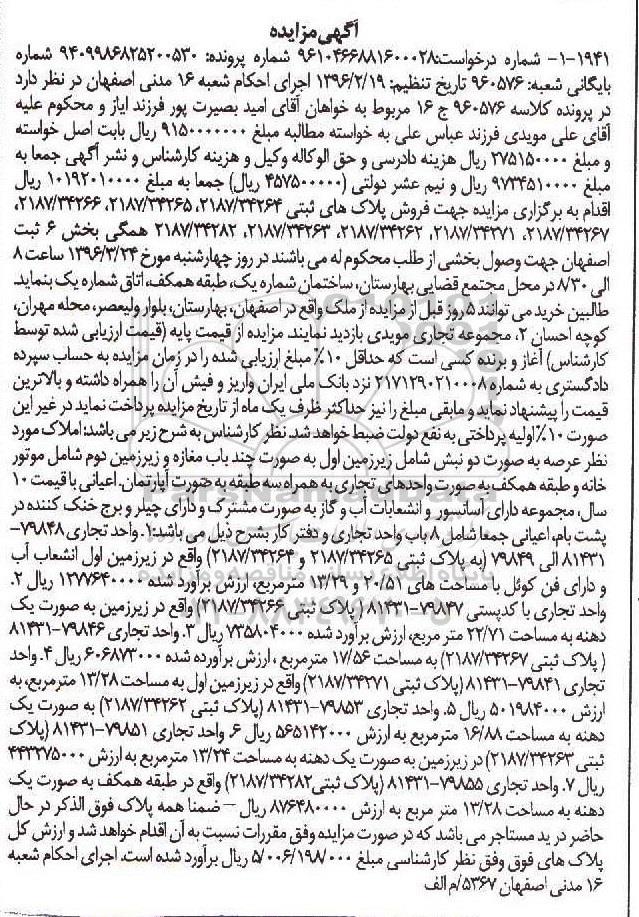 آگهی مزایده
۱۹۴۱-۱- شماره درخواست: ۹۶۱۰۴۶۶۸۸۱۶۰۰۰۲۸ شماره پرونده: ۹۴۰۹۹۸۶۸۲۵۲۰۰۵۳۰ شماره
بایگانی شعبه: ۹۶۰۵۷۶ تاریخ تنظیم: ۱۳۹۶/۲/۱۹ اجرای احکام شعبه ۱۶ مدنی اصفهان در نظر دارد
در پرونده کلاسه ۹۶۰۵۷۶ ج ۱۶ مربوط به خواهان آقای امید بصیرت پور فرزند ایاز و محکوم علیه
آقای علی مویدی فرزند عباس علی به خواسته مطالبه مبلغ ۹۱۵۰۰۰۰۰۰۰ ریال بابت اصل خواسته
و مبلغ ۲۷۵۱۵۰۰۰۰ ریال هزینه دادرسی و حق الوکاله وکیل و هزینه کارشناس و نشر آگهی جمعا به
مبلغ ۹۷۳۴۵۱۰۰۰۰ ریال و نیم عشر دولتی (۴۵۷۵۰۰۰۰۰ ریال) جمعا به مبلغ ۱۰۱۹۲۰۱۰۰۰۰ ریال
اقدام به برگزاری مزایده جهت فروش پلاک های ثبتی ۲۱۸۷/۳۴۲۶۴، ۲۱۸۷/۳۴۲۶۵، ۲۱۸۷/۳۴۲۶۶،
۲۱۸۷/۳۴۲۶۷، ۲۱۸۷/۳۴۲۷۱، ۲۱۸۷/۳۴۲۶۲، ۲۱۸۷/۳۴۲۶۳، ۲۱۸۷/۳۴۲۸۲ همگی بخش ۶ ثبت
اصفهان جهت وصول بخشی از طلب محکوم له می باشند در روز چهارشنبه مورخ ۱۳۹۶/۳/۲۴ ساعت ۸
الی ۸/۳۰ در محل مجتمع قضایی بهارستان، ساختمان شماره یک، طبقه همکف، اتاق شماره یک بنماید.
طالبین خرید می توانند ۵ روز قبل از مزایده از ملک واقع در اصفهان، بهارستان، بلوار ولیعصر، محله مهران،
کوچه احسان ۲، مجموعه تجاری مویدی بازدید نمایند. مزایده از قیمت پایه (قیمت ارزیابی شده توسط
کارشناس) آغاز و برنده کسی است که حداقل ۱۰٪ مبلغ ارزیابی شده را در زمان مزایده به حساب سپرده
دادگستری به شماره ۲۱۷۱۲۹۰۲۱۰۰۰۸ نزد بانک ملی ایران واریز و فیش آن را همراه داشته و بالاترین
قیمت را پیشنهاد نماید و مابقی مبلغ را نیز حداکثر ظرف یک ماه از تاریخ مزایده پرداخت نماید در غیر این
صورت ۱۰٪ اولیه پرداختی به نفع دولت ضبط خواهد شد. نظر کارشناس به شرح زیر می باشد: املاک مورد
نظر عرصه به صورت دو نبش شامل زیرزمین اول به صورت چند باب مغازه و زیرزمین دوم شامل موتور
خانه و طبقه همکف به صورت واحدهای تجاری به همراه سه طبقه به صورت آپارتمان. اعیانی با قیمت ۱۰
سال، مجموعه دارای آسانسور و انشعابات آب و گاز به صورت مشترک و دارای چیلر و برج خنک کننده در
پشت بام، اعیانی جمعا شامل ۸ باب واحد تجاری و دفتر کار بشرح ذیل می باشد: ۱. واحد تجاری ۷۹۸۴۸-
۸۱۴۳۱ الی ۷۹۸۴۹ (به پلاک ثبتی ۲۱۸۷/۳۴۲۶۵ و ۲۱۸۷/۳۴۲۶۴) واقع در زیرزمین اول انشعاب آب
و دارای فن کوئل با مساحت های ۲۰/۵۱ و ۱۳/۲۹ مترمربع، ارزش برآورد شده ۱۲۷۷۶۴۰۰۰۰ ریال ۲.
واحد تجاری با کدپستی ۷۹۸۴۷-۸۱۴۳۱ (پلاک ثبتی ۲۱۸۷/۳۴۲۶۶) واقع در زیرزمین به صورت یک
دهنه به مساحت ۲۲/۷۱ متر مربع، ارزش برآورد شده ۷۳۵۸۰۴۰۰۰ ریال ۳. واحد تجاری ۷۹۸۴۶-۸۱۴۳۱
( پلاک ثبتی ۲۱۸۷/۳۴۲۶۷) به مساحت ۱۷/۵۶ مترمربع ، ارزش برآورده شده ۶۰۶۸۷۳۰۰۰ ریال ۴. واحد
تجاری ۷۹۸۴۱-۸۱۴۳۱ (پلاک ثبتی ۲۱۸۷/۳۴۲۷۱) واقع در زیرزمین اول به مساحت ۱۳/۲۸ مترمربع، به
ارزش ۵۰۱۹۸۴۰۰۰ ریال ۵. واحد تجاری ۷۹۸۵۳-۸۱۴۳۱ (پلاک ثبتی ۲۱۸۷/۳۴۲۶۲) به صورت یک
دهنه به مساحت ۱۶/۸۸ مترمربع به ارزش ۵۶۵۱۴۲۰۰۰ ریال ۶. واحد تجاری ۷۹۸۵۱-۸۱۴۳۱ (پلاک
ثبتی ۲۱۸۷/۳۴۲۶۳) در زیرزمین به صورت یک دهنه به مساحت ۱۳/۲۴ مترمربع به ارزش ۴۴۳۲۷۵۰۰۰
ریال ۷. واحد تجاری ۷۹۸۵۵-۸۱۴۳۱ (پلاک ثبتی ۲۱۸۷/۳۴۲۸۲) واقع در طبقه همکف به صورت یک
دهنه به مساحت ۱۳/۲۸ متر مربع به ارزش ۸۷۶۴۸۰۰۰۰ ریال – ضمنا همه پلاک فوق الذکر در حال
حاضر در ید مستاجر می باشد که در صورت مزایده وفق مقررات نسبت به آن اقدام خواهد شد و ارزش کل
پلاک های فوق وفق نظر کارشناسی مبلغ ۵/۰۰۶/۱۹۸/۰۰۰ ریال برآورد شده است. اجرای احکام شعبه
۱۶ مدنی اصفهان ۵۳۶۷/م الف